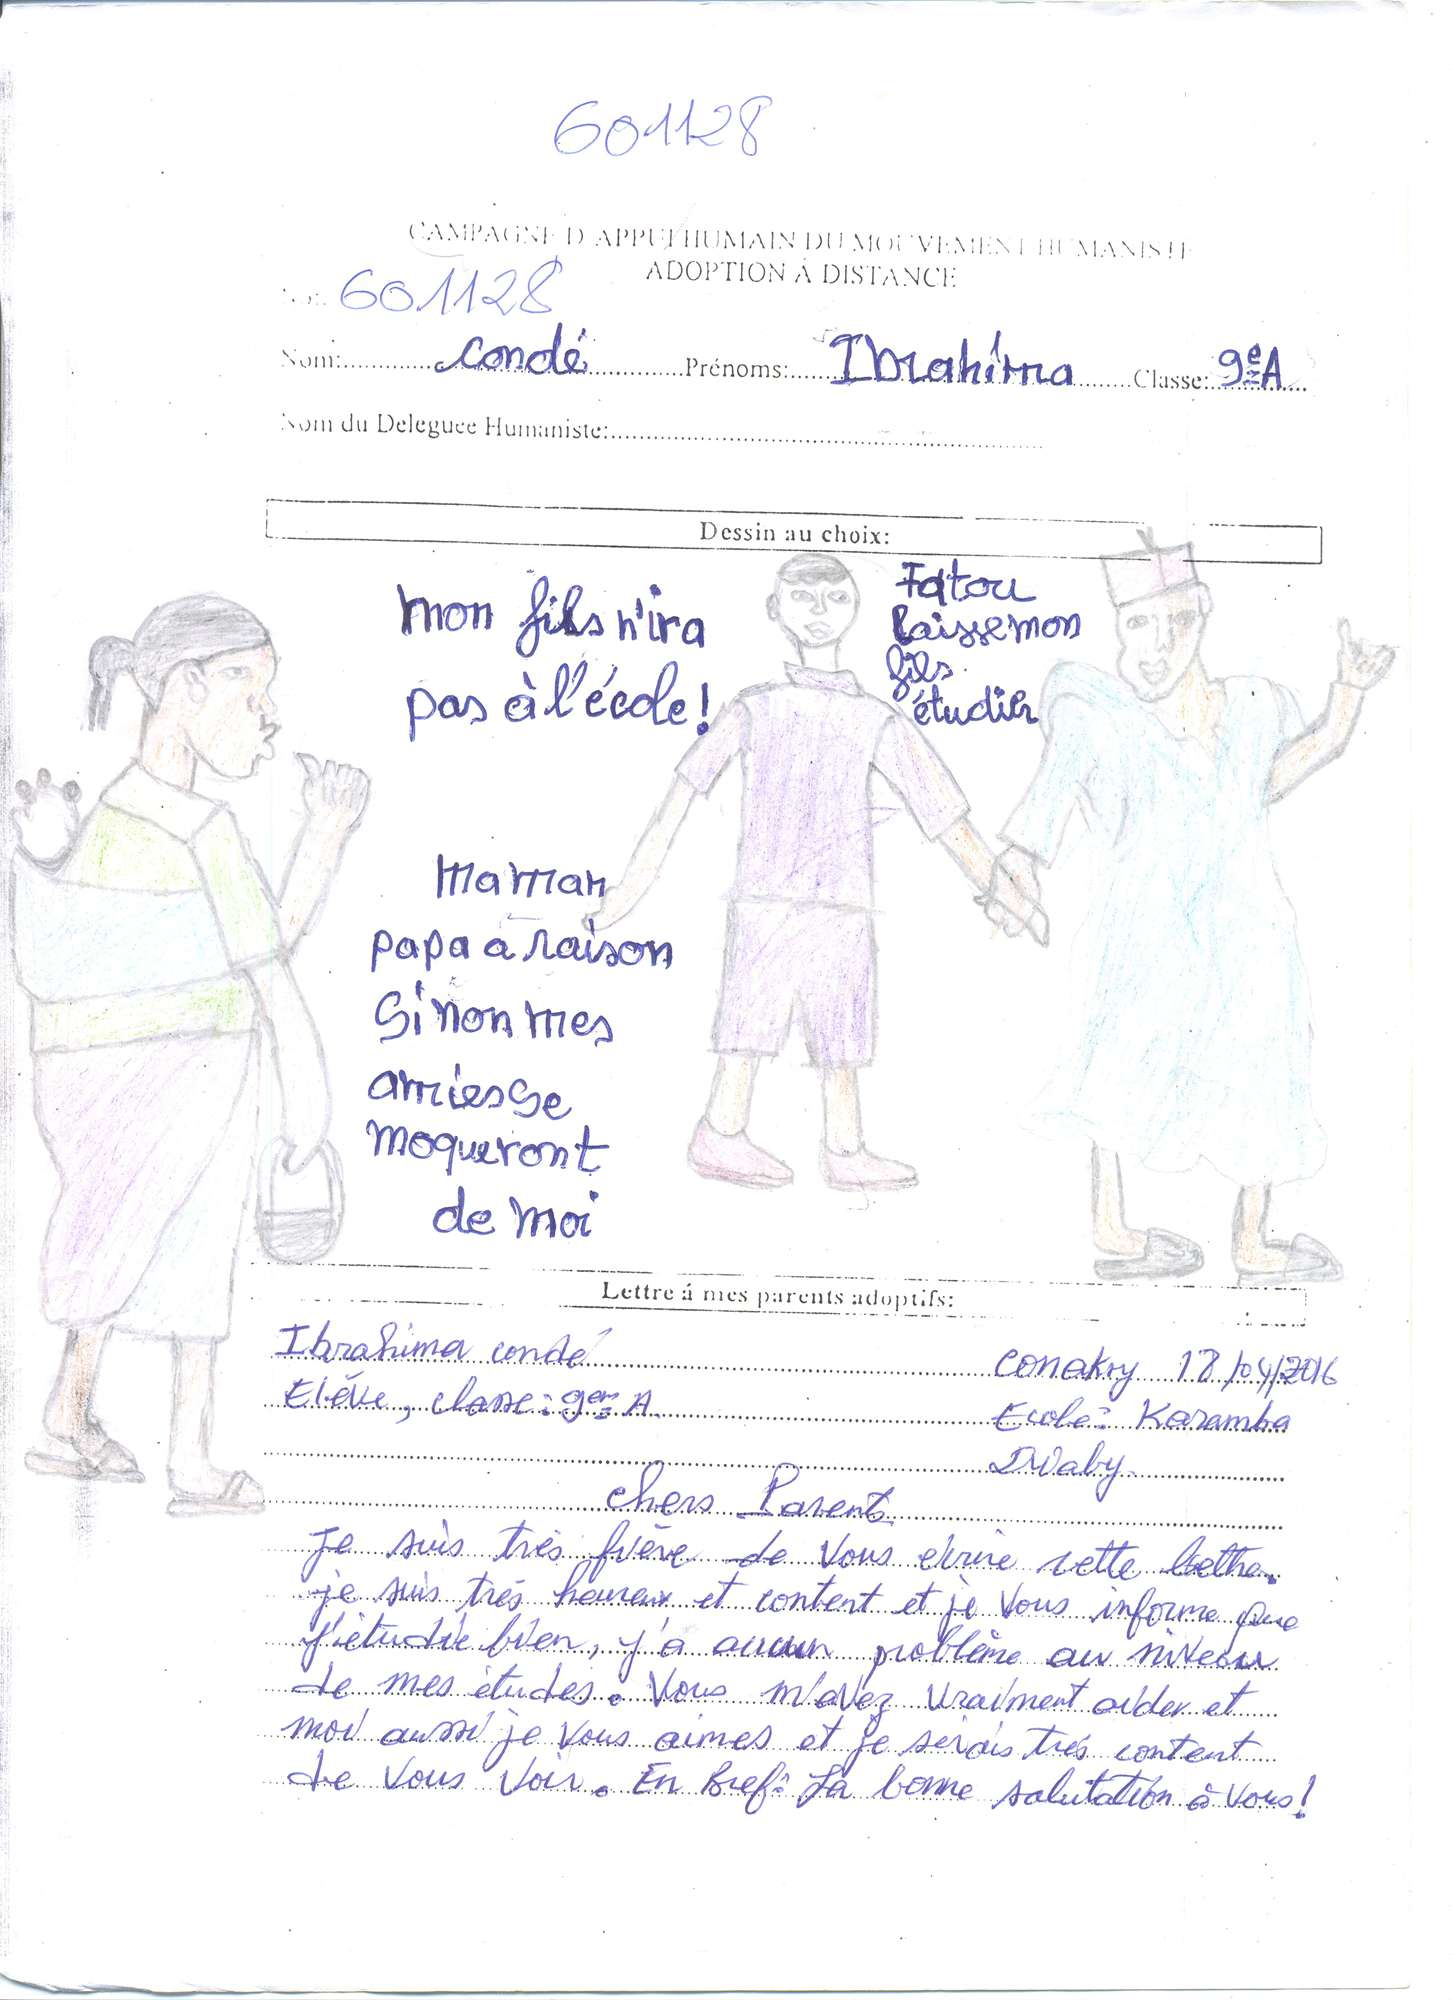 601128
CAMPAGNE D'APPUI HUMAIN DU MOUVEMENT HUMANISTE
ADOPTION À DISTANCE
601128
Nom: Condé Prénoms: Ibrahima Classe: 9e A
Nom du Deleguee Humaniste:
Dessin au choix:
mon fils n'ira
pas à l'école!
Fatou
laisse mon
fils
étudier
Maman
papa a raison
Sinon mes
amies se
moqueront
de moi
Lettre á mes parents adoptifs:
Ibrahima condé
Conakry 18/04/2016
Elève, classe: 9em A
Ecole: Karamba
Diaby.
chers Parents
je suis très fière de vous ecrire cette lettre.
je suis très heureux et content et je vous informe que
j'étudie bien, y'a aucun problème au niveau
de mes études. Vous m'avez vraiment aider et
moi aussi je vous aimes et je serais très content
de vous voir. En Bref: La bonne salutation à vous!